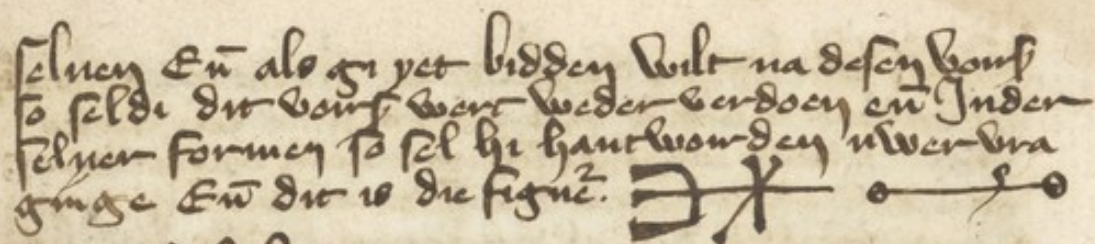 seluen Eñ als gi yet bidden wilt na desen vors
so seldi dit vors werc weder verdoen eñ Inder
seluer formen so sel hi hantworden uwer vra
ginge Eñ dit is die figuer.